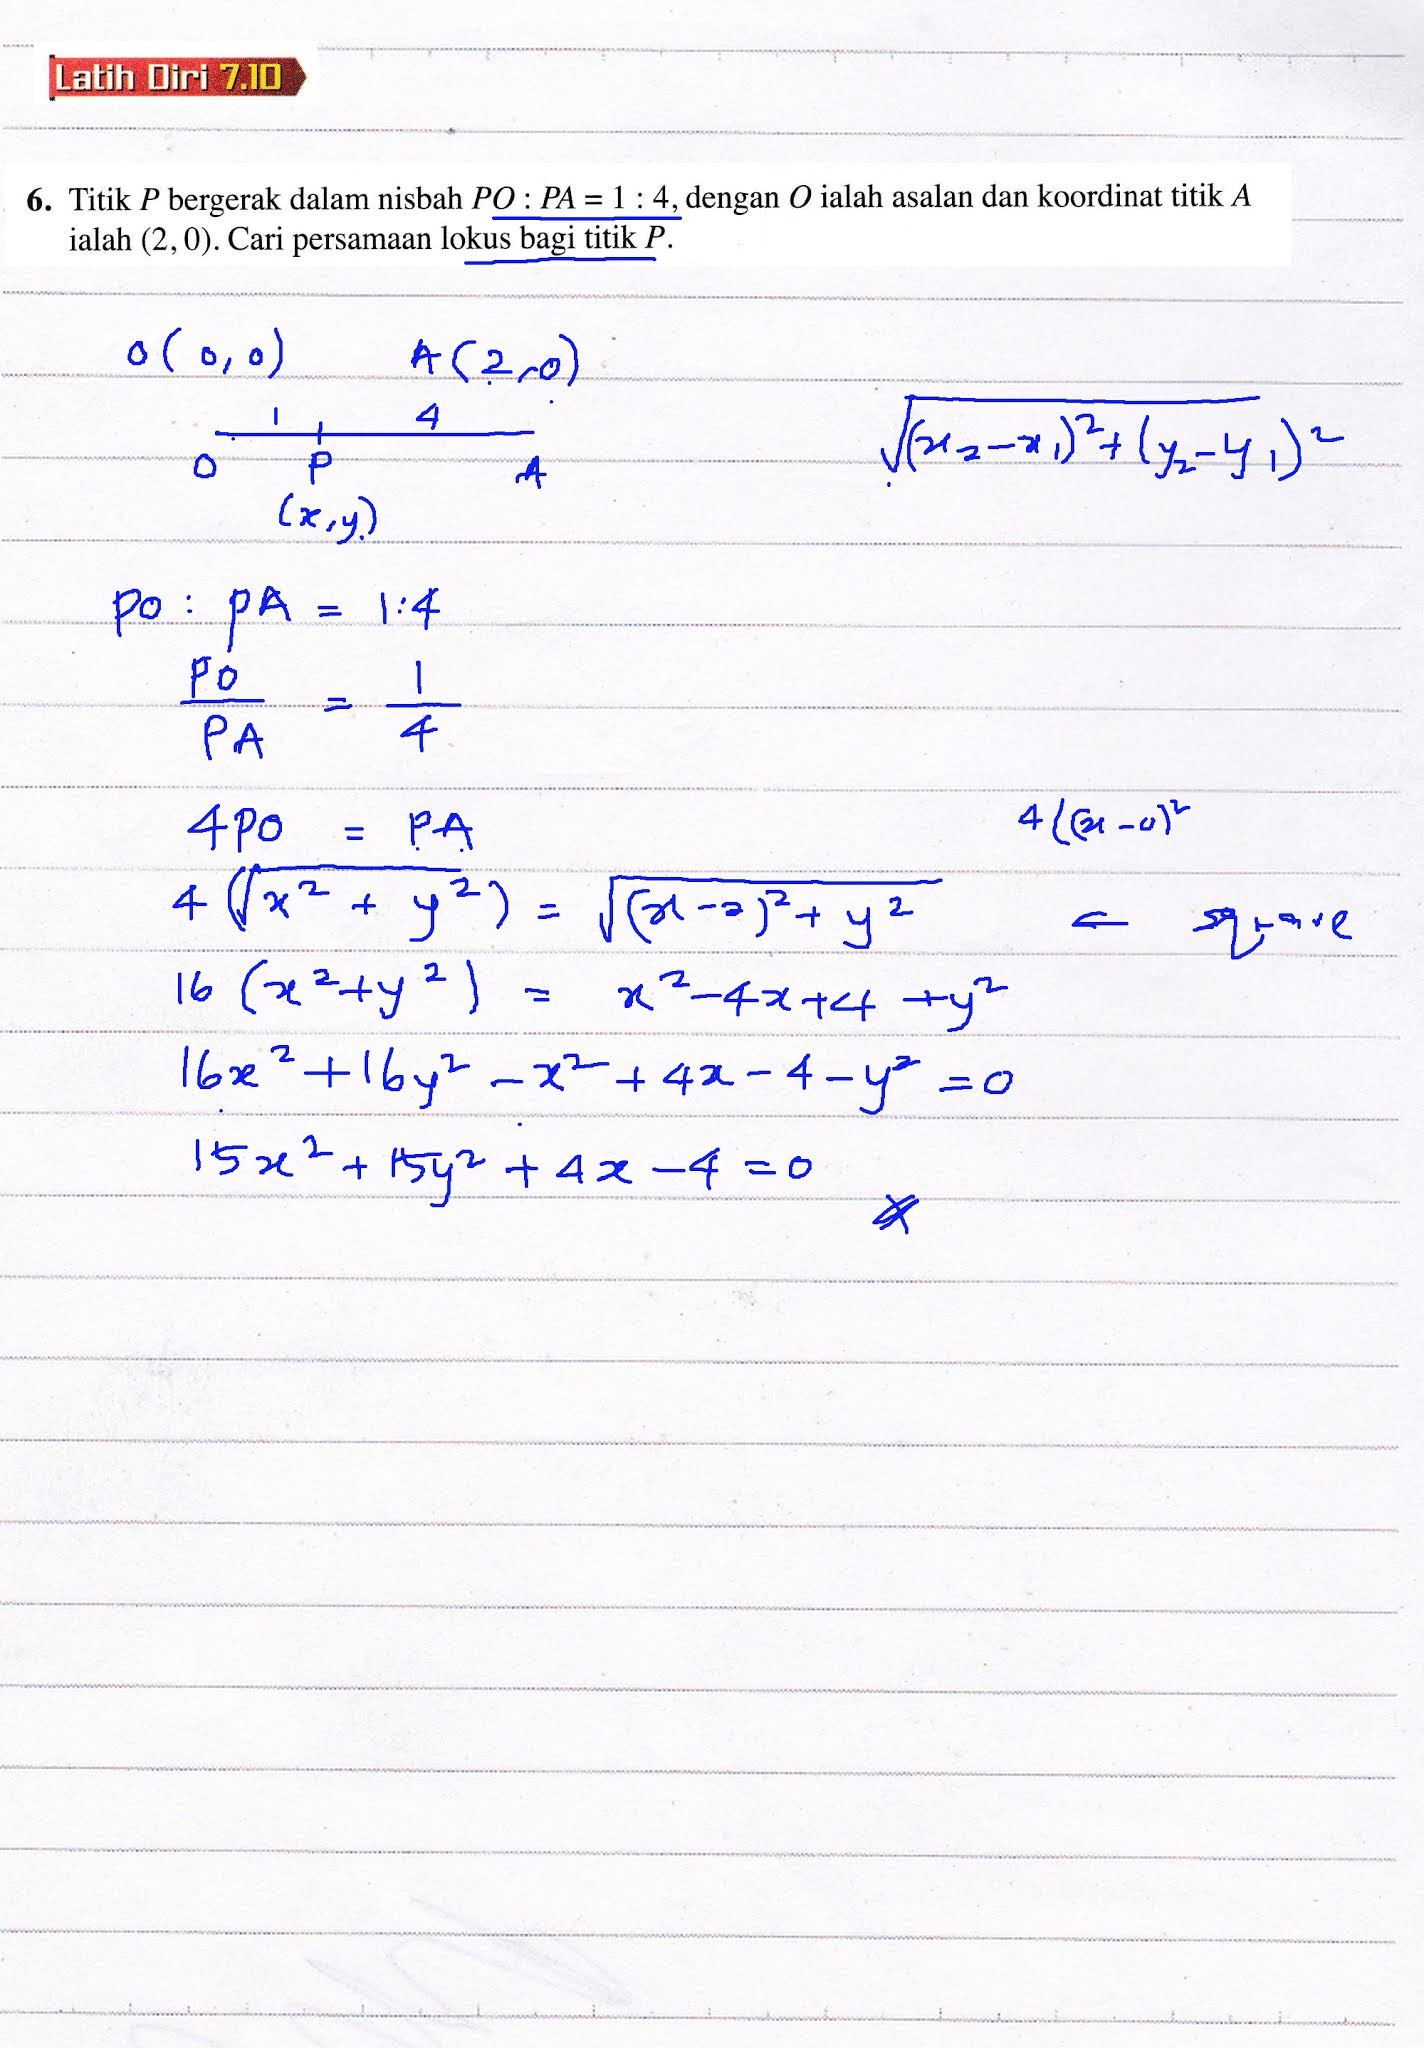 Latih Diri 7.10
6. Titik P bergerak dalam nisbah PO : PA = 1 : 4, dengan O ialah asalan dan koordinat titik A
ialah (2, 0). Cari persamaan lokus bagi titik P.
O(0,0) A(2,0)
1 4
O P A
(x,y)
√(x₂-x₁)²+(y₂-y₁)²
PO : PA = 1:4
PO/PA = 1/4
4PO = PA
4((x-0)²
4(√x²+y²) = √(x-2)²+y² ← square
16(x²+y²) = x²-4x+4+y²
16x²+16y²-x²+4x-4-y²=0
15x²+15y²+4x-4=0